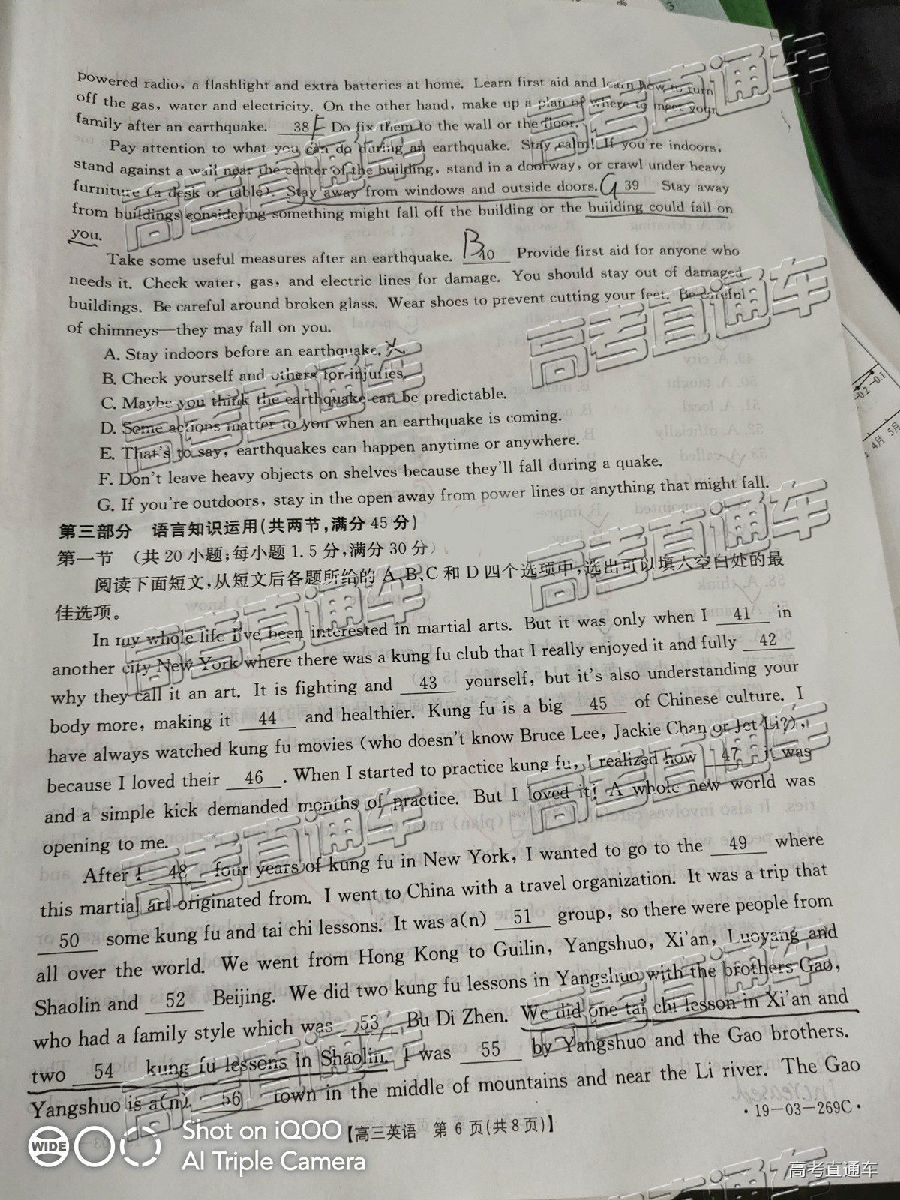 powered radio, a flashlight and extra batteries at home. Learn first aid and learn how to turn
off the gas, water and electricity. On the other hand, make up a plan of where to meet your
family after an earthquake. 38 F Do fix them to the wall or the floor.
Pay attention to what you can do during an earthquake. Stay calm! If you're indoors,
stand against a wall near the center of the building, stand in a doorway, or crawl under heavy
furniture (a desk or table). Stay away from windows and outside doors. G 39 Stay away
from buildings considering something might fall off the building or the building could fall on
you.
Take some useful measures after an earthquake. B 40 Provide first aid for anyone who
needs it. Check water, gas, and electric lines for damage. You should stay out of damaged
buildings. Be careful around broken glass. Wear shoes to prevent cutting your feet. Be careful
of chimneys—they may fall on you.
A. Stay indoors before an earthquake.
B. Check yourself and others for injuries.
C. Maybe you think the earthquake can be predictable.
D. Some actions matter to you when an earthquake is coming.
E. That's to say, earthquakes can happen anytime or anywhere.
F. Don't leave heavy objects on shelves because they'll fall during a quake.
G. If you're outdoors, stay in the open away from power lines or anything that might fall.
第三部分 语言知识运用(共两节,满分 45 分)
第一节 (共 20 小题;每小题 1.5 分,满分 30 分)
阅读下面短文,从短文后各题所给的 A、B、C 和 D 四个选项中,选出可以填入空白处的最
佳选项。
In my whole life I've been interested in martial arts. But it was only when I 41 in
another city New York where there was a kung fu club that I really enjoyed it and fully 42
why they call it an art. It is fighting and 43 yourself, but it's also understanding your
body more, making it 44 and healthier. Kung fu is a big 45 of Chinese culture. I
have always watched kung fu movies (who doesn't know Bruce Lee, Jackie Chan or Jet Li?),
because I loved their 46 . When I started to practice kung fu, I realized how 47 it was
and a simple kick demanded months of practice. But I loved it! A whole new world was
opening to me.
After I 48 four years of kung fu in New York, I wanted to go to the 49 where
this martial art originated from. I went to China with a travel organization. It was a trip that
50 some kung fu and tai chi lessons. It was a(n) 51 group, so there were people from
all over the world. We went from Hong Kong to Guilin, Yangshuo, Xi'an, Luoyang and
Shaolin and 52 Beijing. We did two kung fu lessons in Yangshuo with the brothers Gao,
who had a family style which was 53 Bu Di Zhen. We did one tai chi lesson in Xi'an and
two 54 kung fu lessons in Shaolin. I was 55 by Yangshuo and the Gao brothers.
Yangshuo is a(n) 56 town in the middle of mountains and near the Li river. The Gao
【高三英语 第 6 页(共 8 页)】
·19-03-269C·
WIDE
Shot on iQOO
AI Triple Camera
高考直通车